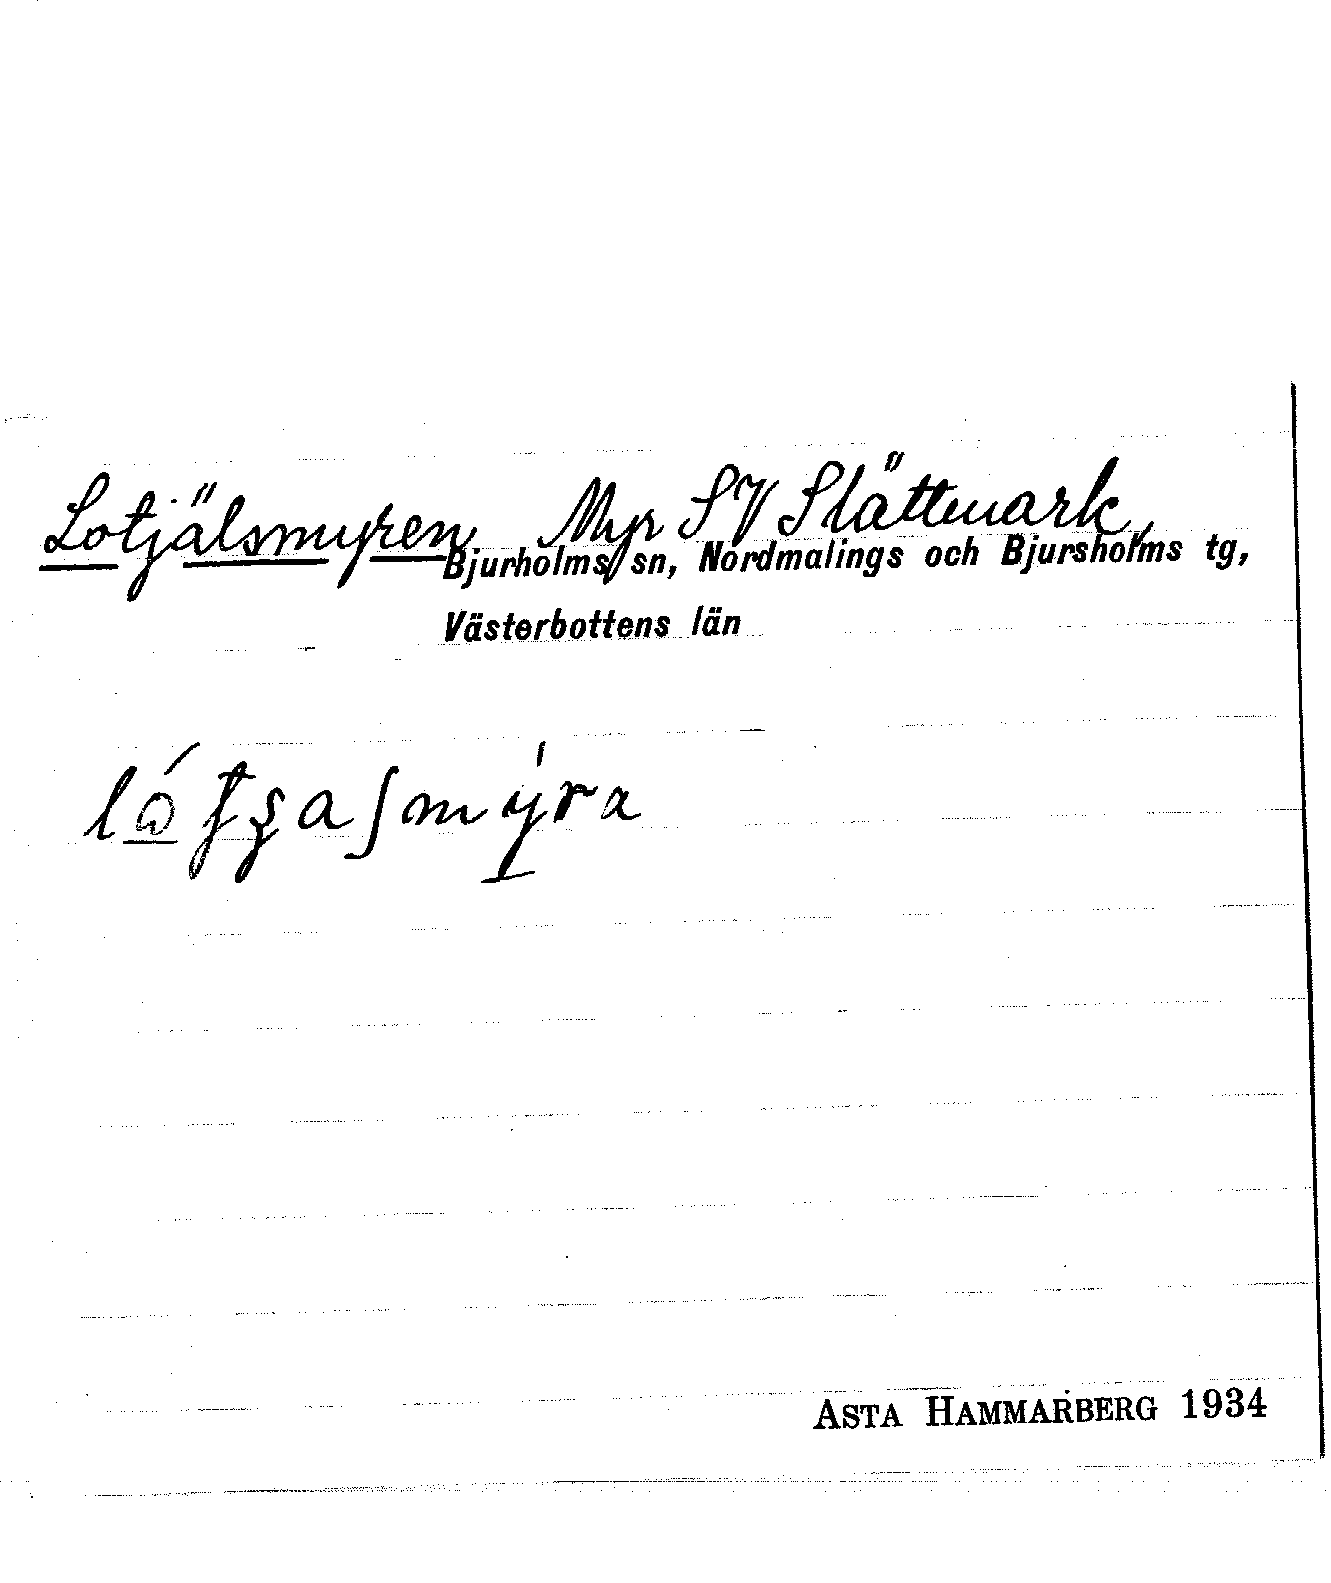 Lotjälsmyren Myr SV Slättmark,
Bjurholms sn, Nordmalings och Bjursholms tg,
Västerbottens län
ASTA HAMMARBERG 1934